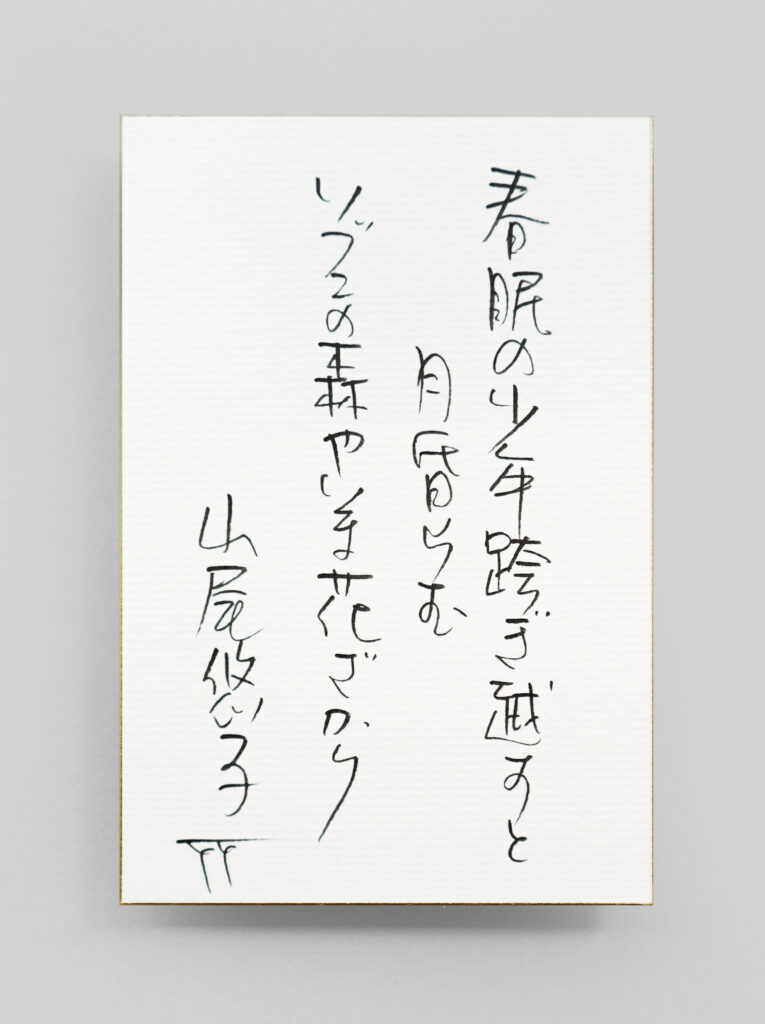 春眠の少年跨ぎ越すと
月昏らむ
いづこの森やいま花ざかり
山尾悠子